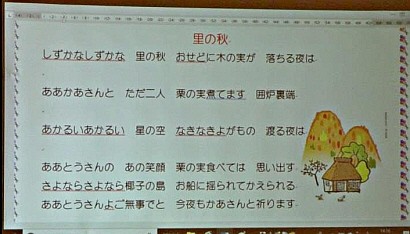 里の秋
しずかなしずかな　里の秋　おせどに木の実が　落ちる夜は
ああかあさんと　ただ二人　栗の実煮てます　囲炉裏端
あかるいあかるい　星の空　なきなきよがもの　渡る夜は
ああとうさんの　あの笑顔　栗の実食べては　思い出す
さよならさよなら椰子の島　お船に揺られてかえられる
ああとうさんよご無事でと　今夜もかあさんと祈ります